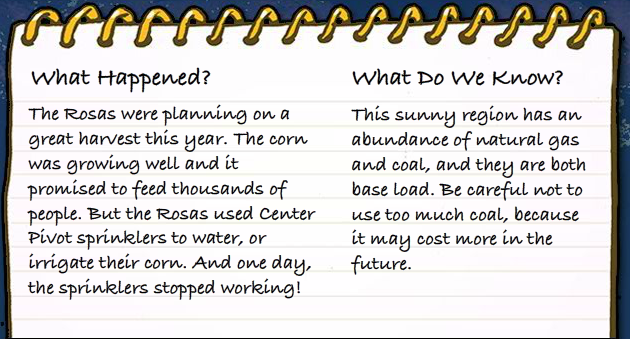 What Happened?
The Rosas were planning on a
great harvest this year. The corn
was growing well and it
promised to feed thousands of
people. But the Rosas used Center
Pivot sprinklers to water, or
irrigate their corn. And one day,
the sprinklers stopped working!
What Do We Know?
This sunny region has an
abundance of natural gas
and coal, and they are both
base load. Be careful not to
use too much coal, because
it may cost more in the
future.